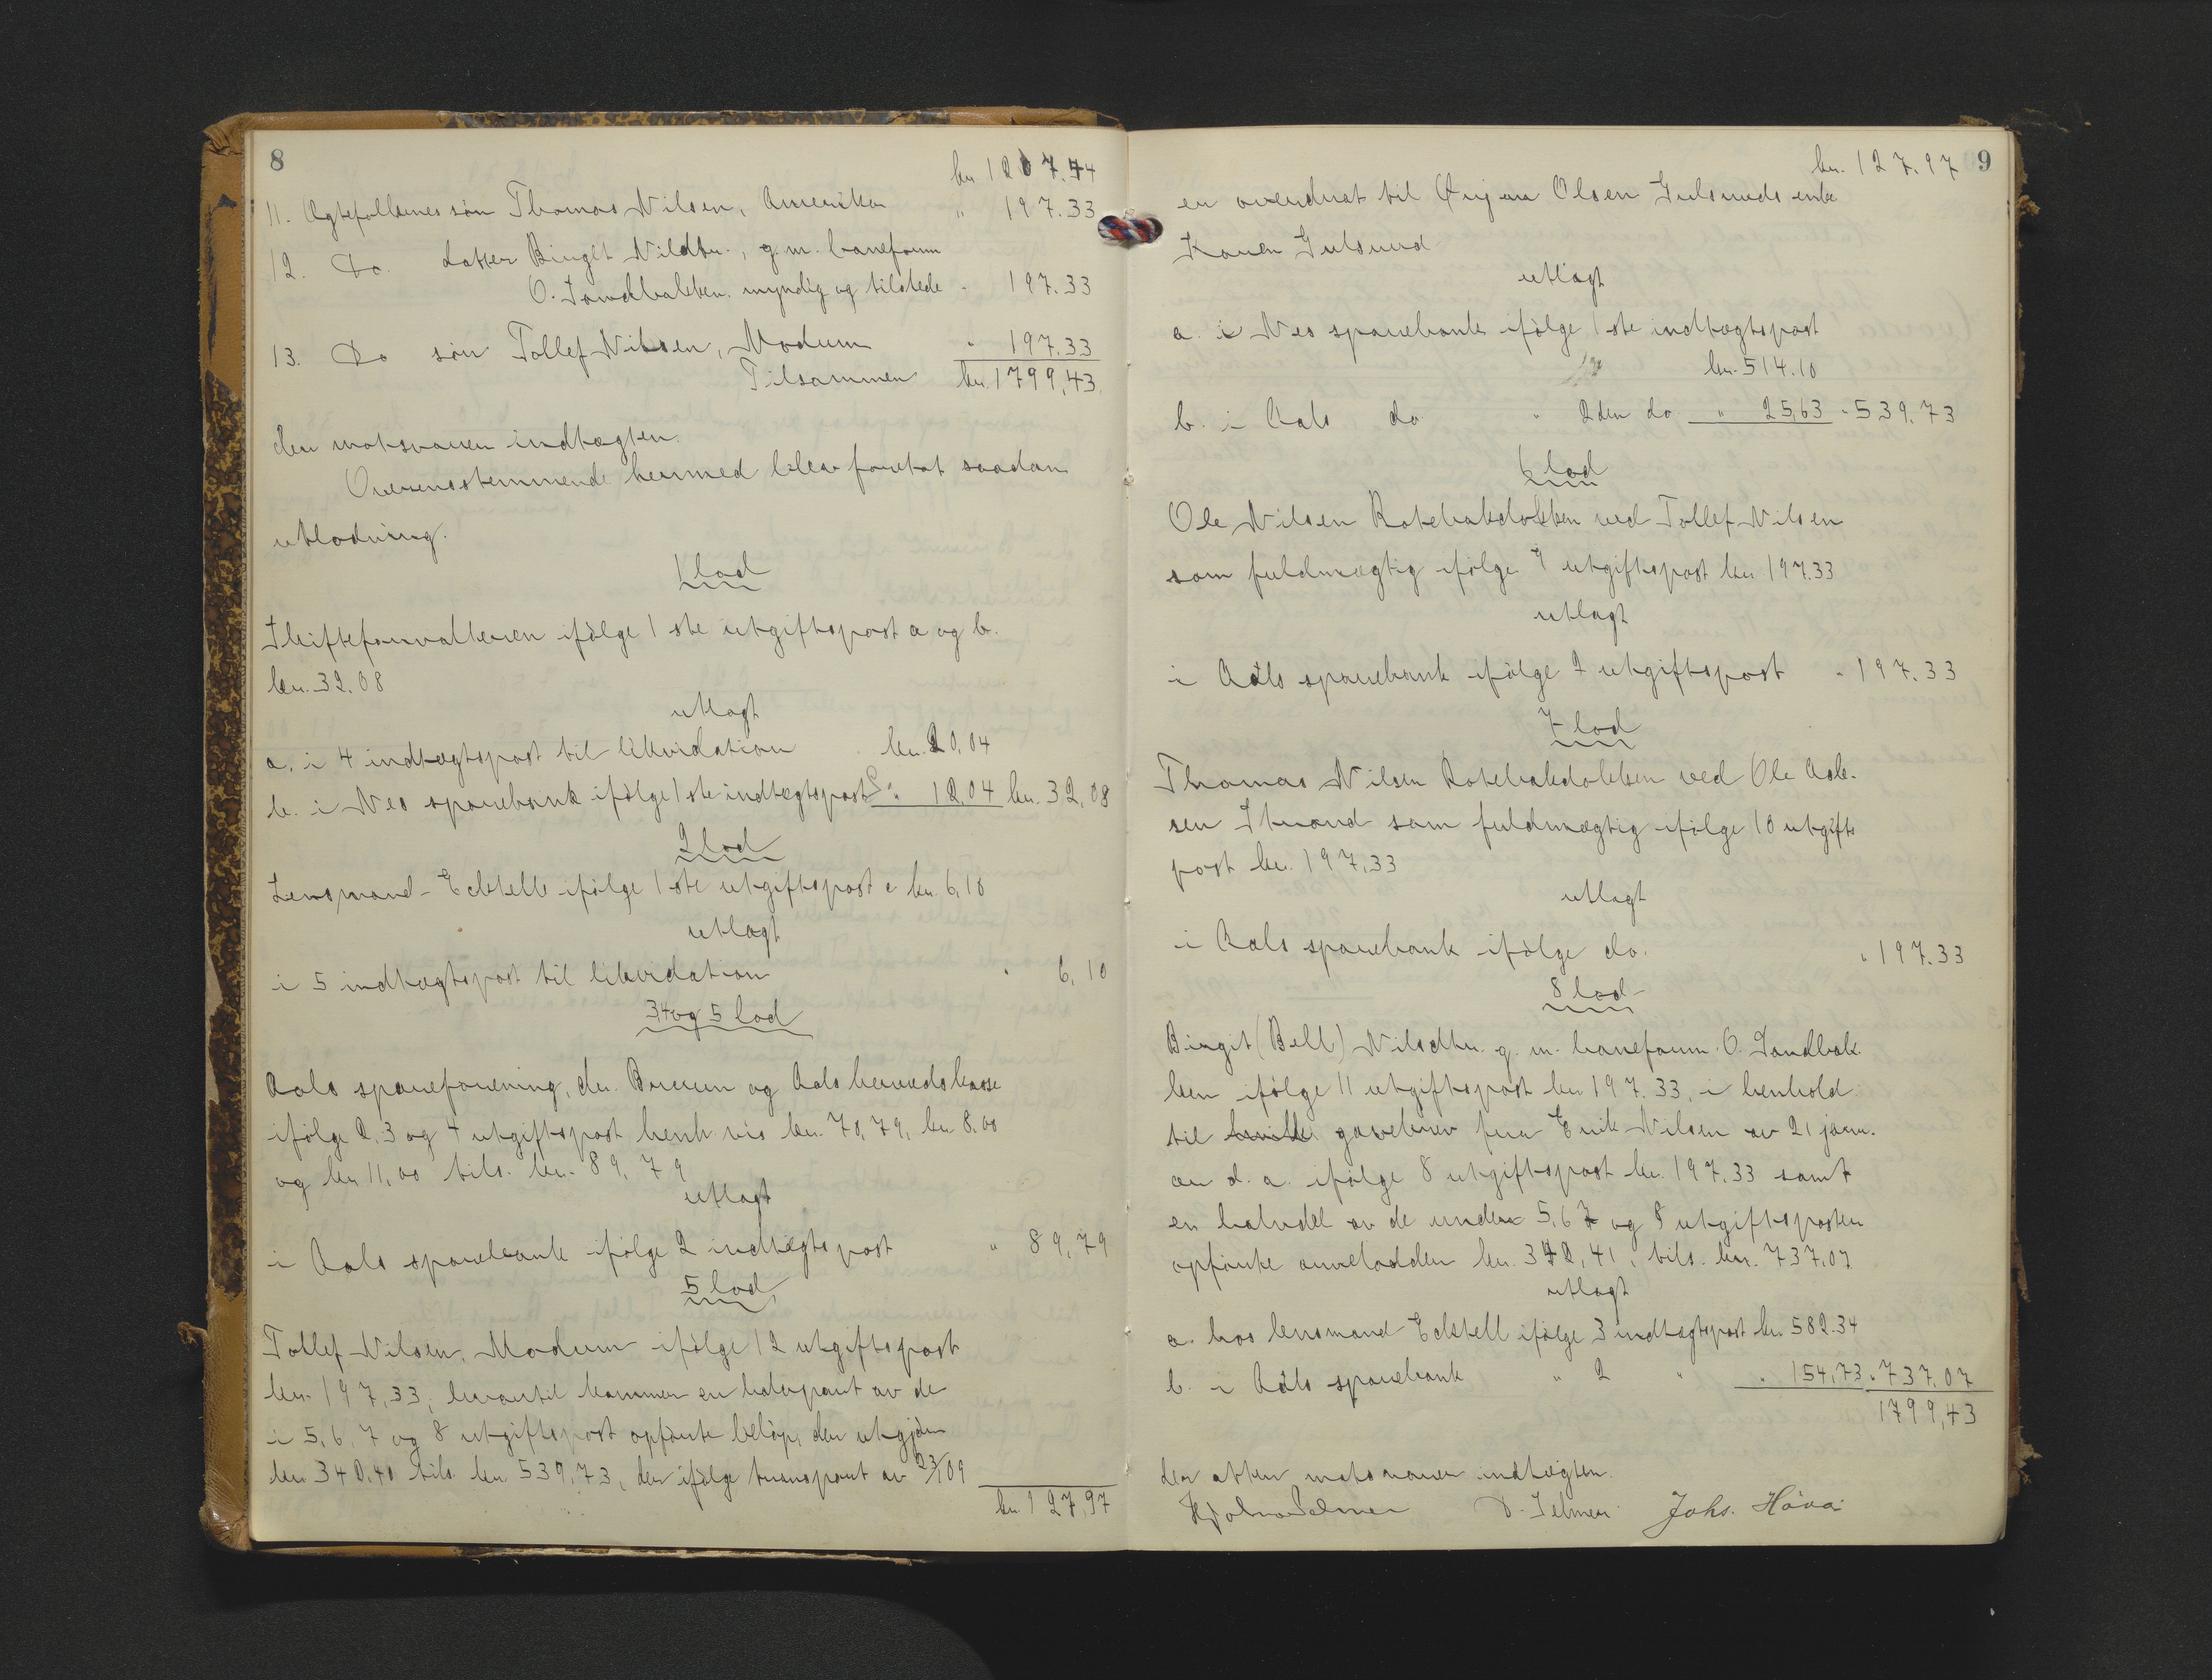 8
kr. 1207.44
11. Ægtefolkenes søn Thomas Nilsen, Amerika " 197.33
12. Do. datter Birgit Nilsdtr., g. m. baneform
O. Sandbakken, myndig og tilstede " 197.33
13. Do søn Tollef Nilsen, Modum " 197.33
Tilsammen kr. 1799,43
der motsvarer indtægten.
Overensstemmende hermed blev foretat saadan
utlodning.
1 lod
Skifteforvalteren ifølge 1ste utgiftspost a og b.
kr. 32.08
utlagt
a. i 4 indtægtspost til likvidation kr. 20,04
b. i Nes sparebank ifølge 1ste indtægtspost " 12,04 kr. 32,08
2 lod
Lensmand Eckstell ifølge 1ste utgiftspost c kr. 6,10
utlagt
i 5 indtægtspost til likvidation " 6,10
3,4 og 5 lod
Aals spareforening, dr. Bruun og Aals herredskasse
ifølge 2, 3 og 4 utgiftspost henh.vis kr. 70,79, kr 8.00
og kr 11,00 tils. kr. 89,79
utlagt
i Aals sparebank ifølge 2 indtægtspost " 89,79
5 lod
Tollef Nilsen, Modum ifølge 12 utgiftspost
kr. 197,33; hvortil kommer en halvpart av de
i 5, 6, 7 og 8 utgiftspost opførte beløp, der utgjør
kr 342,40 tils. kr. 539,73, der ifølge transport av 23/1 09
kr. 127,97
kr. 127.97 9
er overdrat til Ørjan Olsen Gulsruds enke
Karen Gulsrud
utlagt
a. i Nes sparebank ifølge 1ste indtægtspost
kr. 514.10
b. i Aals do " 2den do " 25,63 " 539.73
6 lod
Ole Nilsen Rotebakdokken ved Tollef Nilsen
som fuldmægtig ifølge 9 utgiftspost kr 197.33
utlagt
i Aals sparebank ifølge 2 utgiftspost " 197.33
7 lod
Thomas Nilsen Rotebakdokken ved Ole Asle-
sen Strand som fuldmægtig ifølge 10 utgifts
post kr. 197,33
utlagt
i Aals sparebank ifølge do. " 197.33
8 lod
Birgit (Bell) Nilsdtr. g. m. baneform. O. Sandbak
ken ifølge 11 utgiftspost kr 197.33, i henhold
til gavebrev fra Erik Nilsen av 21 janr.
av d. a. ifølge 8 utgiftspost kr. 197.33 samt
en halvdel av de under 5, 6 7 og 8 utgiftsposter
opførte arvelodder kr. 342,41, tils. kr. 737,07
utlagt
a. hos lensmand Eckstell ifølge 3 indtægtspost kr 582.34
b. i Aals sparebank " 2 " " 154,73 " 737.07
1799,43
der atter motsvarer indtægten.
D. Selmer Johs. Håva